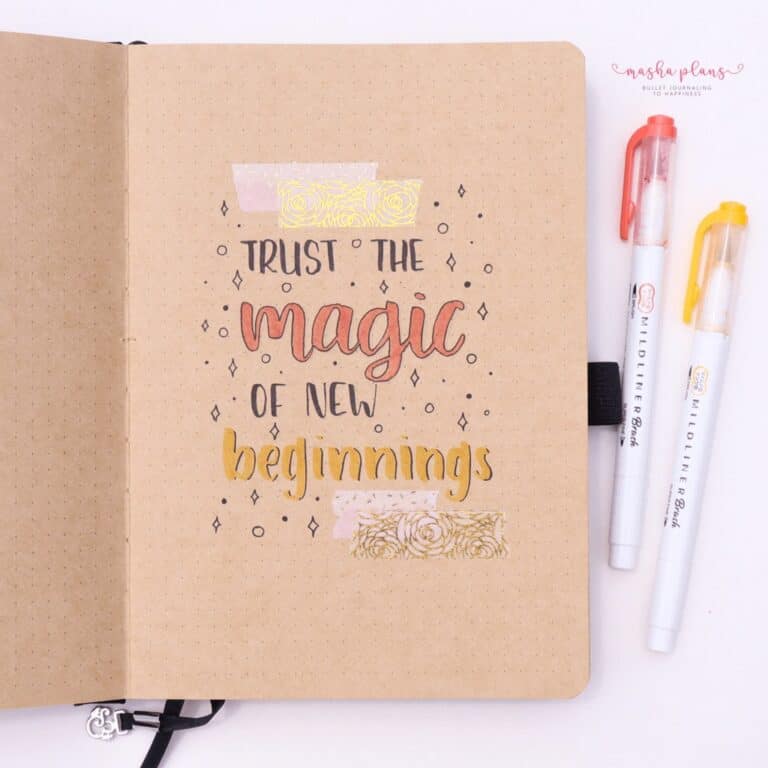 masha plans
BULLET JOURNALING
TO HAPPINESS
TRUST THE
magic
OF NEW
beginnings
MILDLINER Brush
MILDLINER Brush